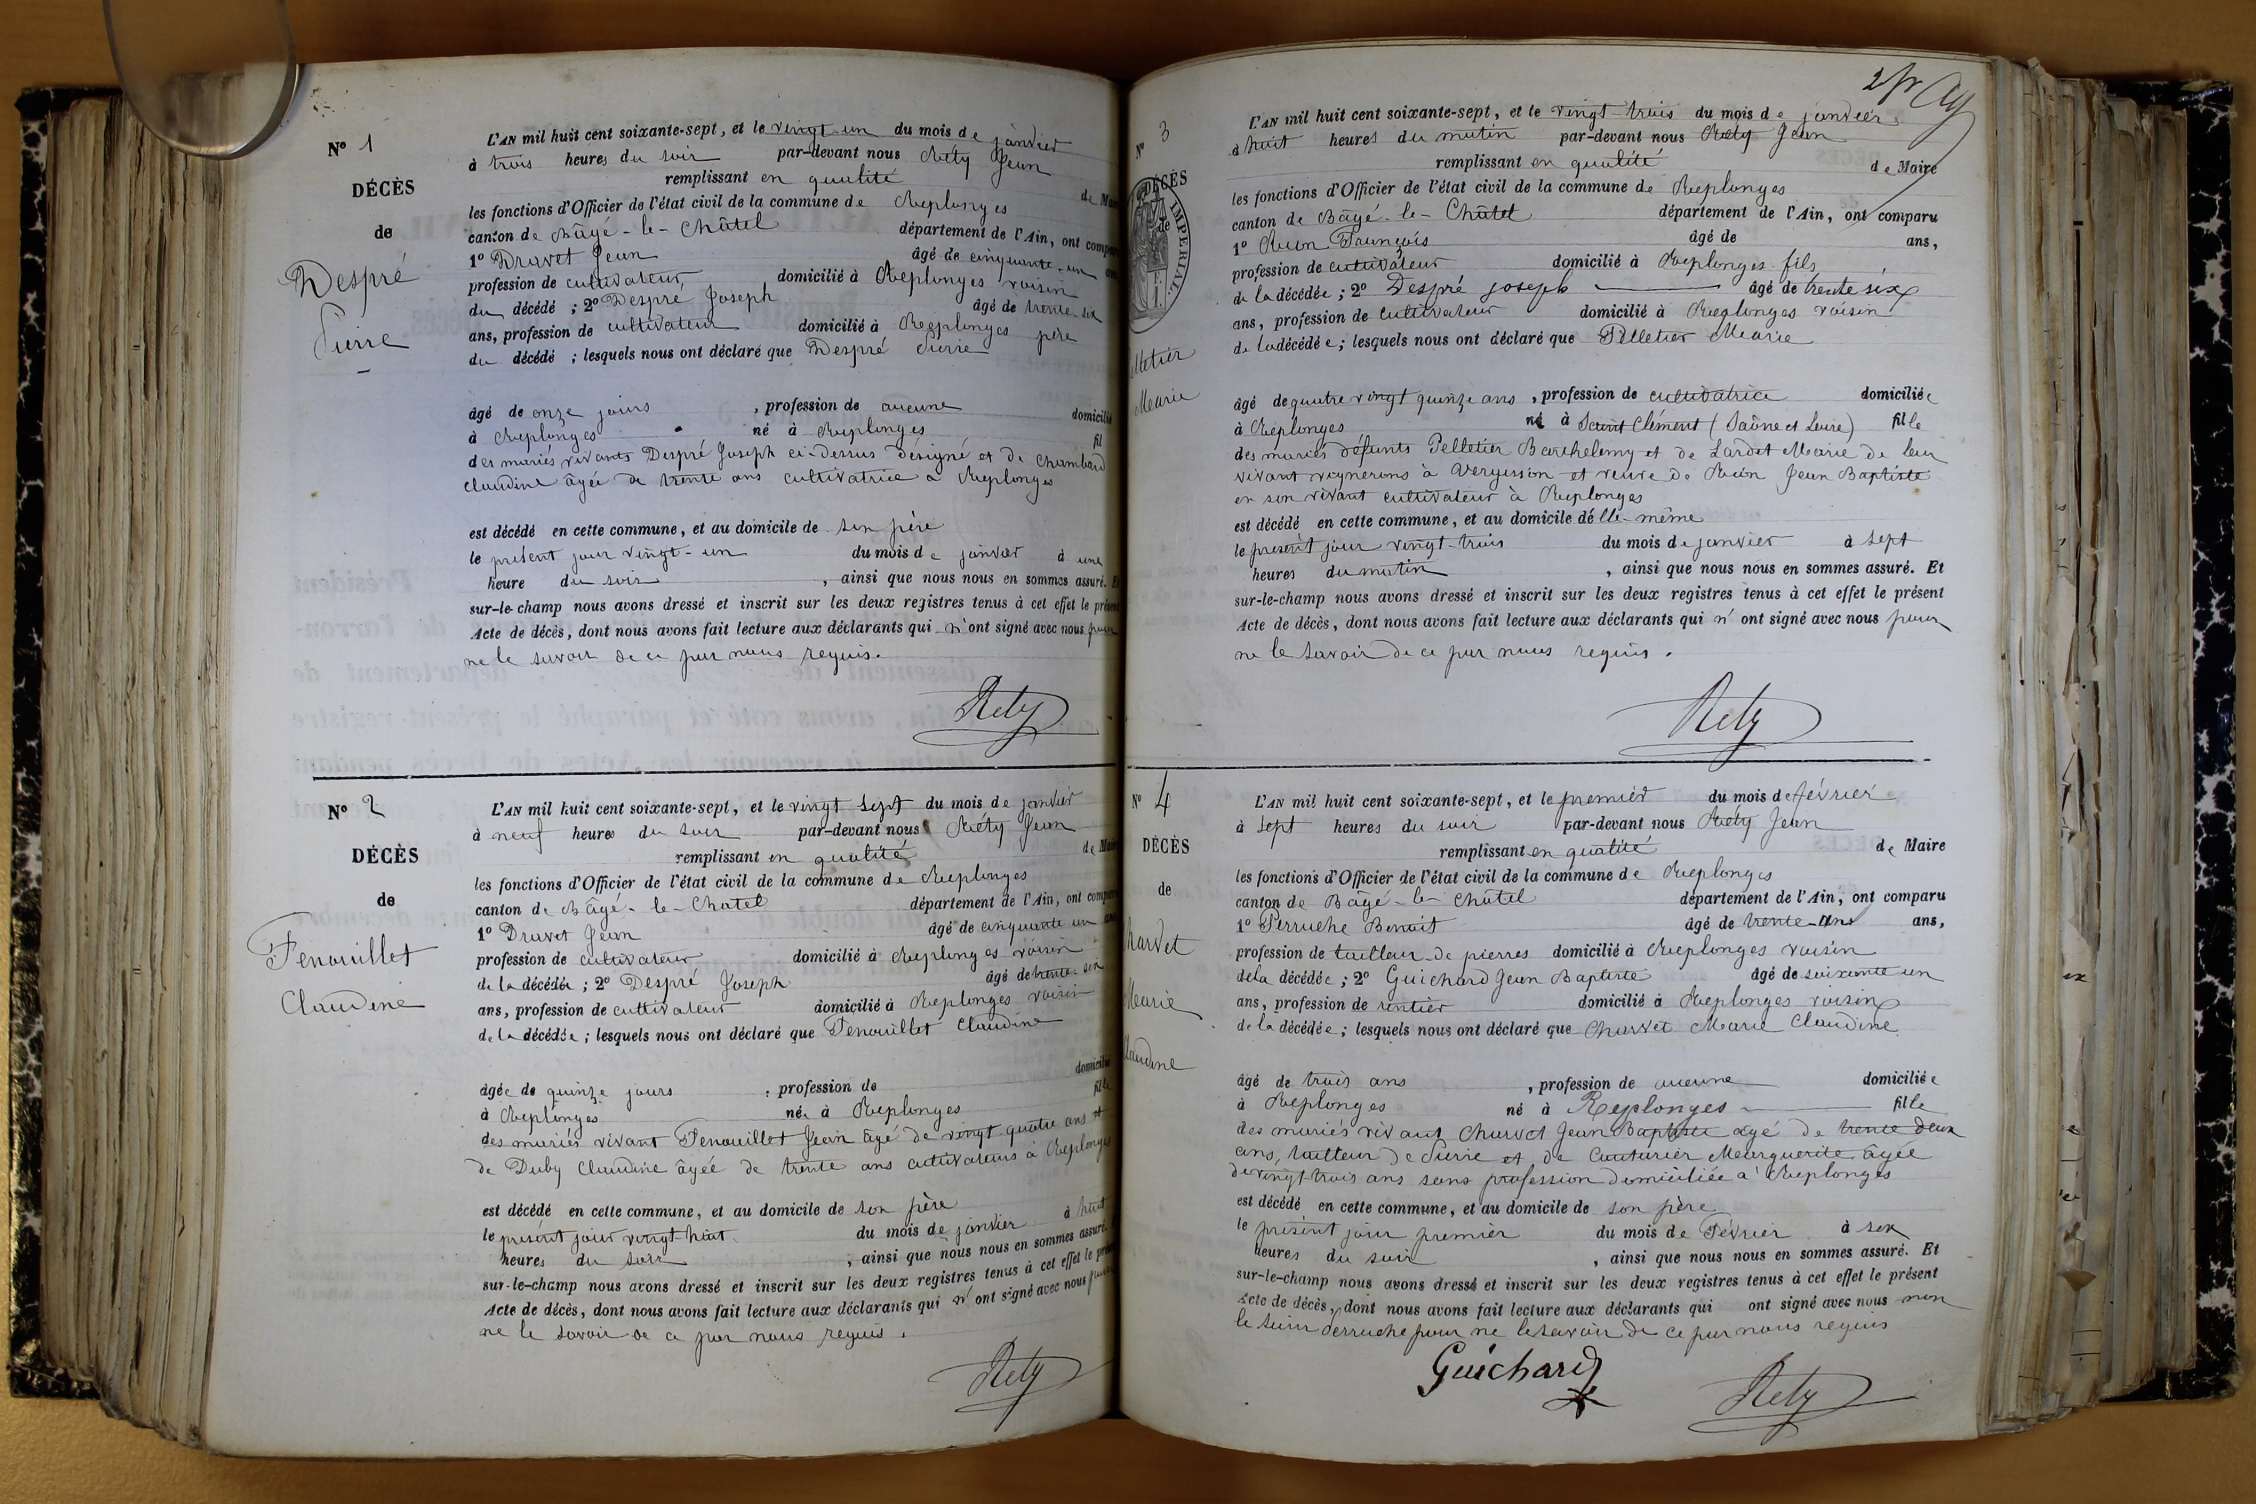 Nº 1
DÉCÈS
de
Despré
Pierre
L'AN mil huit cent soixante-sept, et le vingt-un du mois de janvier
à trois heures du soir par-devant nous Réty Jean
remplissant en qualité de Maire
les fonctions d'Officier de l'état civil de la commune de Replonges
canton de Bâgé-le-Châtel département de l'Ain, ont comparu
1º Druvet Jean âgé de cinquante-un ans
profession de cultivateur, domicilié à Replonges voisin
du décédé ; 2º Despré Joseph âgé de trente six
ans, profession de cultivateur domicilié à Replonges père
du décédé ; lesquels nous ont déclaré que Despré Pierre
âgé de onze jours , profession de aucune domicilié
à Replonges né à Replonges fil
des mariés vivants Despré Joseph ci-dessus désigné et de Chambard
Claudine âgée de trente ans cultivatrice à Replonges
est décédé en cette commune, et au domicile de son père
le présent jour vingt-un du mois de janvier à une
heure du soir , ainsi que nous nous en sommes assuré. Et
sur-le-champ nous avons dressé et inscrit sur les deux registres tenus à cet effet le présent
Acte de décès, dont nous avons fait lecture aux déclarants qui n'ont signé avec nous pour
ne le savoir de ce par nous requis.
Réty
Nº 2
DÉCÈS
de
Fenouillet
Claudine
L'AN mil huit cent soixante-sept, et le vingt sept du mois de janvier
à neuf heures du soir par-devant nous Réty Jean
remplissant en qualité de Maire
les fonctions d'Officier de l'état civil de la commune de Replonges
canton de Bâgé-le-Chatel département de l'Ain, ont comparu
1º Druvet Jean âgé de cinquante un ans
profession de cultivateur domicilié à Replonges voisin
de la décédée ; 2º Despré Joseph âgé de trente-six
ans, profession de cultivateur domicilié à Replonges voisin
de la décédée ; lesquels nous ont déclaré que Fenouillet Claudine
âgée de quinze jours , profession de domicilié
à Replonges née à Replonges fille
des mariés vivant Fenouillet Jean âgé de vingt quatre ans et
de Duby Claudine âgée de trente ans cultivateurs à Replonges
est décédé en cette commune, et au domicile de son père
le présent jour vingt-huit du mois de janvier à huit
heures du soir , ainsi que nous nous en sommes assuré.
sur-le-champ nous avons dressé et inscrit sur les deux registres tenus à cet effet le présent
Acte de décès, dont nous avons fait lecture aux déclarants qui n'ont signé avec nous pour
ne le savoir de ce par nous requis.
Réty
Nº 3
DÉCÈS
de
IMPERIAL
lletier
Marie
L'AN mil huit cent soixante-sept, et le vingt-trois du mois de janvier
à huit heures du matin par-devant nous Réty Jean
remplissant en qualité de Maire
les fonctions d'Officier de l'état civil de la commune de Replonges
canton de Bâgé-le-Châtel département de l'Ain, ont comparu
1º François âgé de ans,
profession de cultivateur domicilié à Replonges fils
de la décédée ; 2º Despré joseph âgé de trente six
ans, profession de cultivateur domicilié à Replonges voisin
de la décédée ; lesquels nous ont déclaré que Pelletier Marie
âgé de quatre vingt quinze ans , profession de cultivatrice domiciliée
à Replonges né à Saint Clément (Saône et Loire) fille
des mariés défunts Pelletier Barthelemy et de Lardet Marie de leur
vivant vignerons à Vergisson et veuve de Jean Baptiste
en son vivant cultivateur à Replonges
est décédé en cette commune, et au domicile d'élle-même
le présent jour vingt-trois du mois de janvier à sept
heures du matin , ainsi que nous nous en sommes assuré. Et
sur-le-champ nous avons dressé et inscrit sur les deux registres tenus à cet effet le présent
Acte de décès, dont nous avons fait lecture aux déclarants qui n'ont signé avec nous pour
ne le savoir de ce par nous requis.
Réty
Nº 4
DÉCÈS
de
harvet
Marie
laudine
L'AN mil huit cent soixante-sept, et le premier du mois de février
à sept heures du soir par-devant nous Réty Jean
remplissant en qualité de Maire
les fonctions d'Officier de l'état civil de la commune de Replonges
canton de Bâgé-le-Châtel département de l'Ain, ont comparu
1º Perruche Benoit âgé de trente-un ans,
profession de tailleur de pierres domicilié à Replonges voisin
de la décédée ; 2º Guichard Jean Baptiste âgé de soixante un
ans, profession de rentier domicilié à Replonges voisin
de la décédée ; lesquels nous ont déclaré que Charvet Marie Claudine
âgé de trois ans , profession de aucune domiciliée
à Replonges né à Replonges fille
des mariés vivant Charvet Jean Baptiste âgé de trente deux
ans, tailleur de Pierre et de Couturier Marguerite âgée
de vingt-trois ans sans profession domiciliée à Replonges
est décédé en cette commune, et au domicile de son père
le présent jour premier du mois de Février à six
heures du soir , ainsi que nous nous en sommes assuré. Et
sur-le-champ nous avons dressé et inscrit sur les deux registres tenus à cet effet le présent
Acte de décès, dont nous avons fait lecture aux déclarants qui ont signé avec nous non
le sieur Perruche pour ne le savoir de ce par nous requis
Guichard
Réty